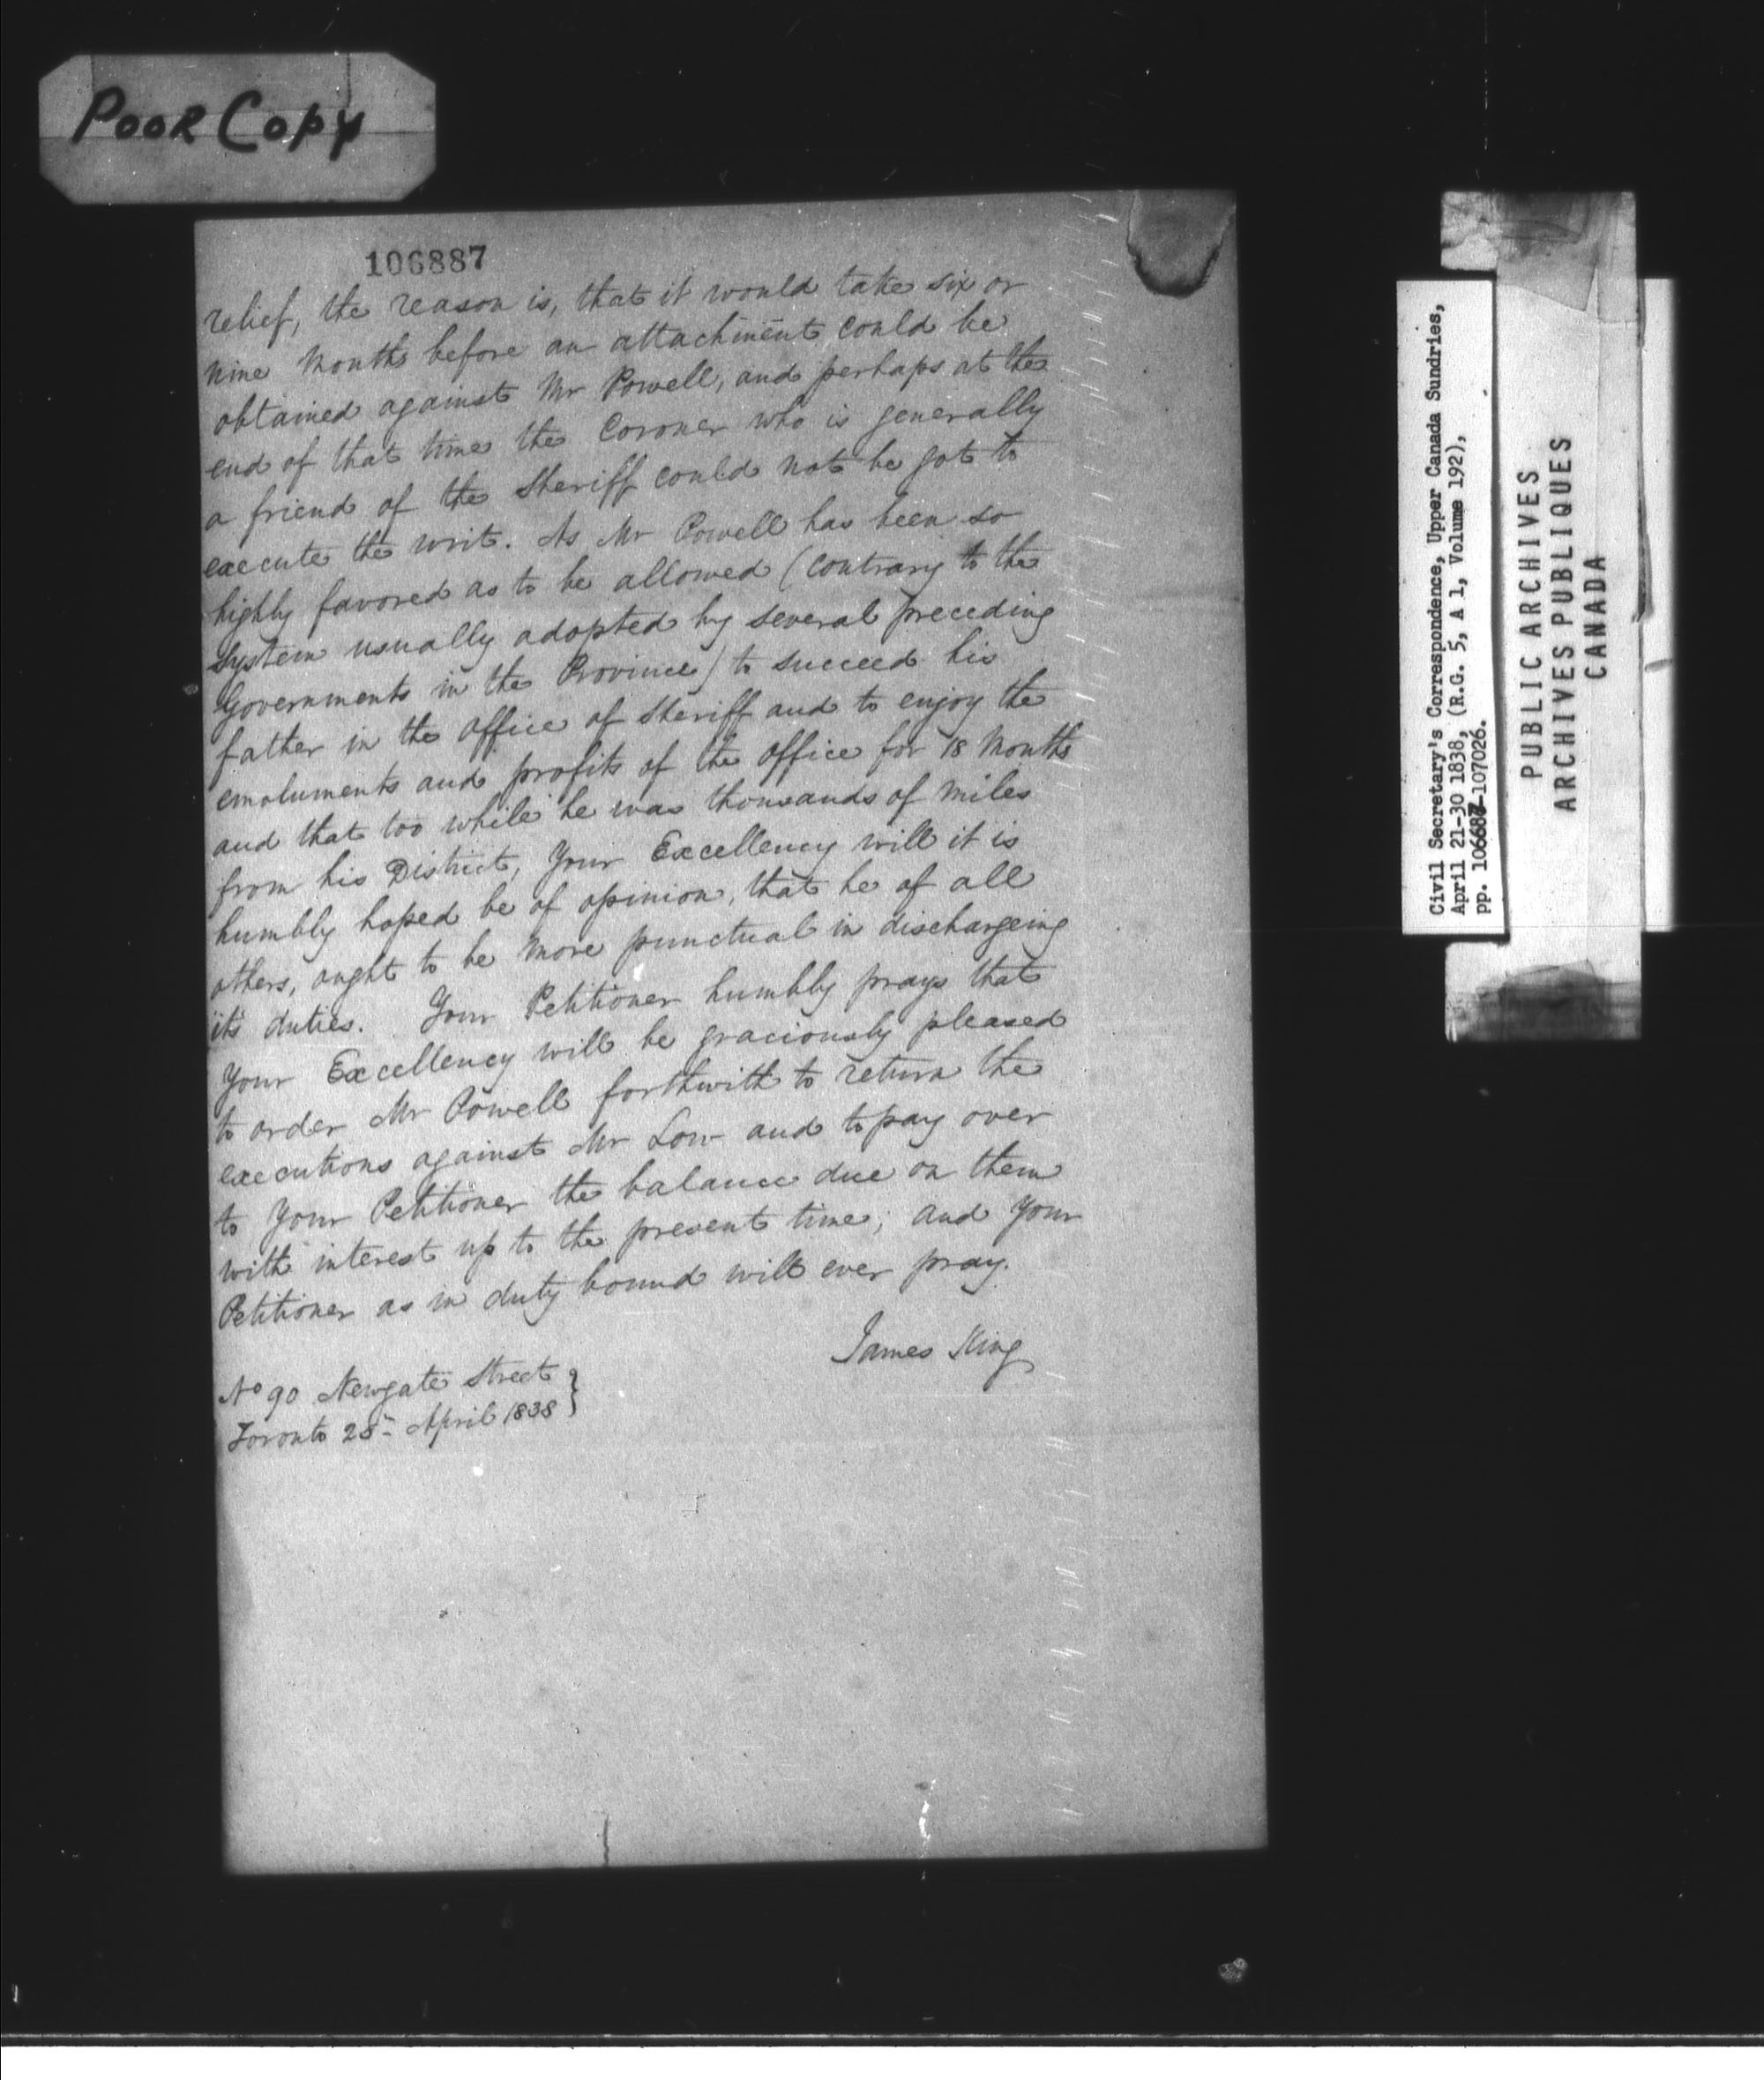 Poor Copy
106887
relief, the reason is, that it would take six or
nine Months before an attachment could be
obtained against Mr Powell, and perhaps at the
end of that time the Coroner who is generally
a friend of the Sheriff could not be got to
execute the writ. As Mr Powell has been so
highly favored as to be allowed (contrary to the
system usually adopted by several preceding
Governments in the Province) to succeed his
father in the office of Sheriff and to enjoy the
emoluments and profits of the office for 18 Months
and that too while he was thousands of miles
from his District, Your Excellency will it is
humbly hoped be of opinion, that he of all
others, ought to be more punctual in dischargeing
its duties. Your Petitioner humbly prays that
Your Excellency will be graciously pleased
to order Mr Powell forthwith to return the
executions against Mr Low and to pay over
to Your Petitioner the balance due on them
with interest up to the present time; and Your
Petitioner as in duty bound will ever pray.
James King
No 90 Newgate Street
Toronto 28 April 1838
Civil Secretary's Correspondence, Upper Canada Sundries,
April 21-30 1838, (R.G. 5, A 1, Volume 192),
pp. 106687-107026.
PUBLIC ARCHIVES
ARCHIVES PUBLIQUES
CANADA